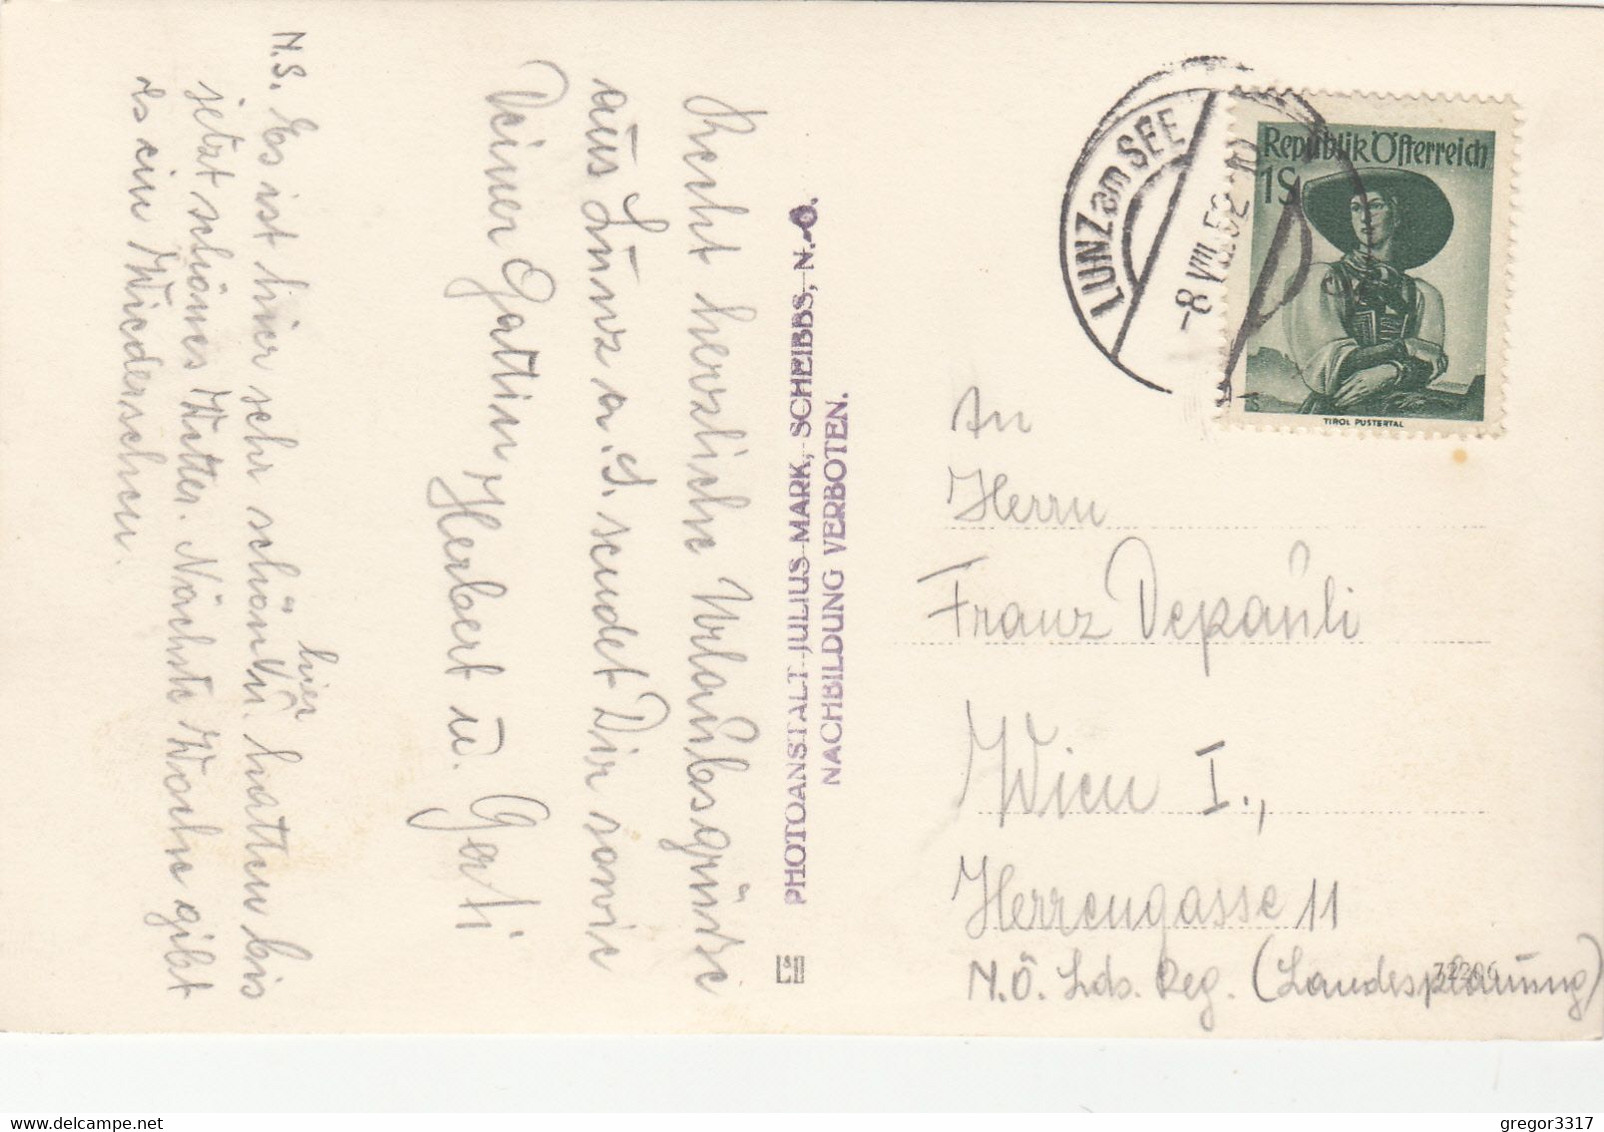 Recht herzliche Urlaubsgrüsse
aus Lunz a. S. sendet Dir sowie
Deiner Gattin, Herbert u. Gerti
N.S. Es ist hier sehr schön u. hatten hier bis
jetzt schönes Wetter. Nächste Woche gibt
es ein Wiedersehen.
PHOTOANSTALT JULIUS MARK, SCHEIBBS, N.-Ö.
NACHBILDUNG VERBOTEN.
LUNZ am SEE
-8.VIII.52-10
Republik Österreich
1S
TIROL PUSTERTAL
An
Herrn
Franz Depauli
Wien I.,
Herrengasse 11
N.Ö. Lds. Reg. (Landesplanung)
gregor3317